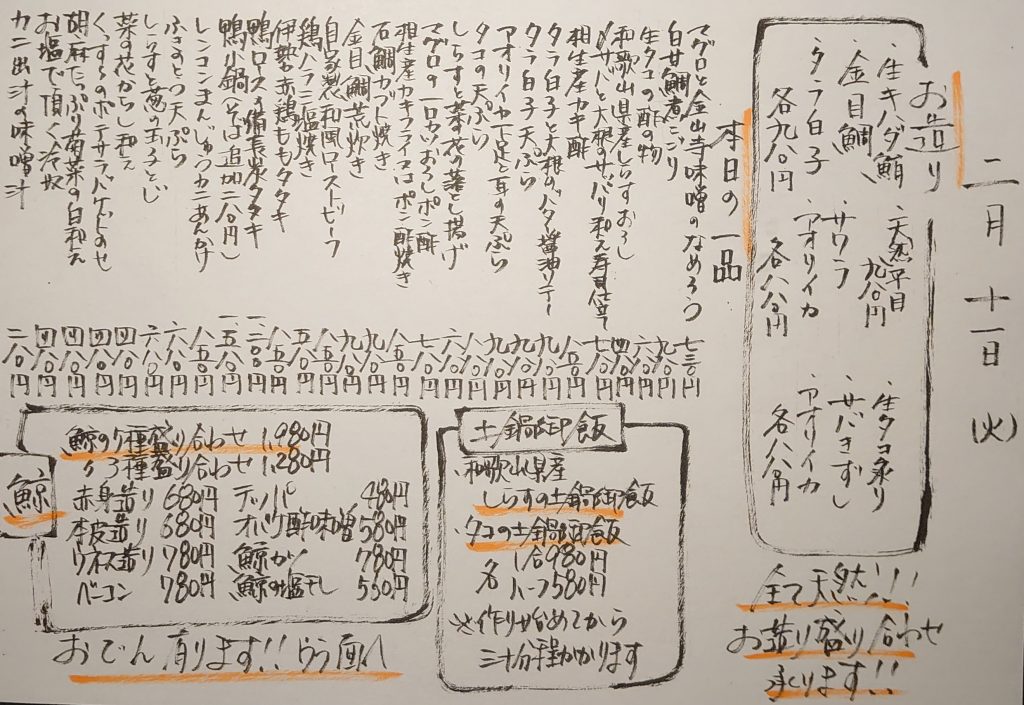 二月十一日(火)
お造り
・生キハダ鮪
・金目鯛
・タラ白子
各九八〇円
・天然平目
九八〇円
・サワラ
・アオリイカ
各八八〇円
・生タコ造り
・サバきずし
・アオリイカ
各八八〇円
全て天然!!!
お造り盛り合わせ
承ります!!
本日の一品
マグロと金山寺味噌のなめろう 七三〇円
白甘鯛煮こごり 九八〇円
生タコの酢の物 六八〇円
和歌山県産しらすおろし 四八〇円
〆サバと大根のサッパリ和え寿司仕立て 七八〇円
相生産カキ酢 八五〇円
タラ白子と大根のバター醤油ソテー 九八〇円
タラ白子天ぷら 九八〇円
アオリイカ下足と耳の天ぷら 九八〇円
タコの天ぷら 八八〇円
しらすと菜の花の落とし揚げ 六八〇円
マグロの一口カツおろしポン酢 七八〇円
相生産カキフライ又はポン酢焼き 八五〇円
石鯛カブト焼き 九八〇円
金目鯛荒炊き 九八〇円
自家製和風ローストビーフ 八八〇円
鶏ハラミ塩焼き 五八〇円
伊勢赤鶏ももタタキ 八五〇円
鴨ロースの備長炭タタキ 一、二〇〇円
鴨小鍋(そば追加二八〇円) 一、五八〇円
レンコンまんじゅうカニあんかけ 八五〇円
ふきのとう天ぷら 六八〇円
しらすと葱の玉子とじ 六八〇円
菜の花からし和え 四八〇円
くっするのポテサラバゲットのせ 四八〇円
胡麻たっぷり菊菜の白和え 四八〇円
お塩で頂く冷奴 四八〇円
カニ出汁の味噌汁 二八〇円
土鍋御飯
・和歌山県産
しらすの土鍋御飯
・タコの土鍋御飯
各 1合980円
ハーフ580円
※作り始めてから
三十分程かかります
鯨
鯨の9種盛り合わせ 1,980円
〃3種盛り合わせ 1,280円
赤身造り 680円 テッパ 480円
本皮造り 680円 オバケ酢味噌 580円
ウネス造り 780円 鯨カツ 780円
ベーコン 780円 鯨の塩干し 550円
おでん有ります!!